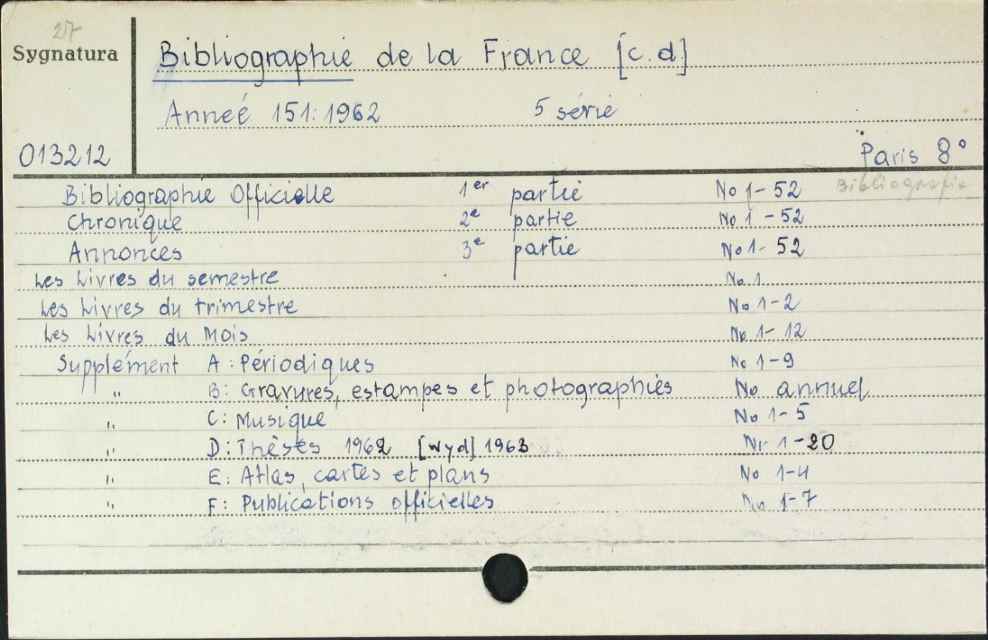 27
Sygnatura
Bibliographie de la France [c.d]
Anneé 151: 1962 5 série
013212 Paris 8°
Bibliografie
Bibliographie Officielle 1er partie No 1-52
Chronique 2e partie No 1-52
Annonces 3e partie No 1-52
Les Livres du semestre No 1
Les Livres du trimestre No 1-2
Les Livres du Mois No 1-12
Supplément A: Périodiques No 1-9
" B: Gravures, estampes et photographies No annuel
" C: Musique No 1-5
" D: Thèses 1962 [wyd] 1963 Nr 1-20
" E: Atlas, cartes et plans No 1-4
" F: Publications officielles No 1-7